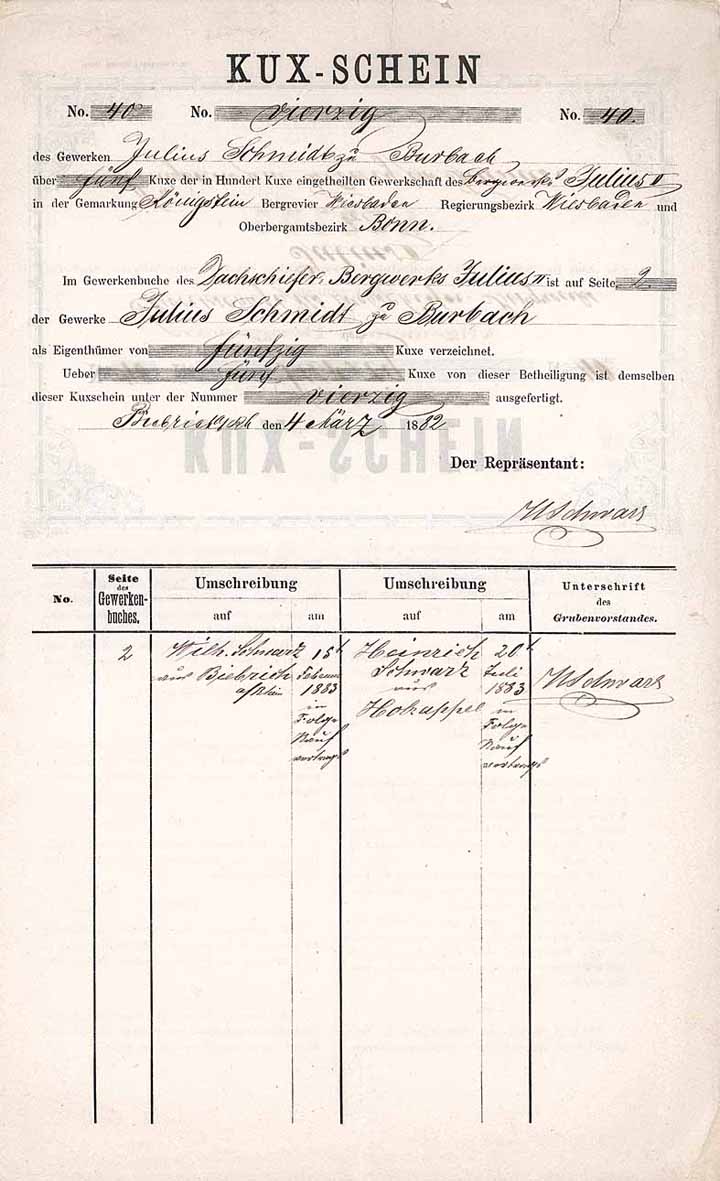 KUX-SCHEIN
No. 40 No. vierzig No. 40.
des Gewerken Julius Schmidt zu Burbach
über fünf Kuxe der in Hundert Kuxe eingetheilten Gewerkschaft des Bergwerks Julius II
in der Gemarkung Königstein Bergrevier Wiesbaden Regierungsbezirk Wiesbaden und
Oberbergamtsbezirk Bonn.
Im Gewerkenbuche des Dachschiefer-Bergwerks Julius II ist auf Seite 2
der Gewerke Julius Schmidt zu Burbach
als Eigenthümer von fünfzig Kuxe verzeichnet.
Ueber fünf Kuxe von dieser Betheiligung ist demselben
dieser Kuxschein unter der Nummer vierzig ausgefertigt.
den 4 März 1882
Der Repräsentant:
WSchwarz
No. Seite des Gewerken-buches. Umschreibung auf am Umschreibung auf am Unterschrift des Grubenvorstandes.
2 Wilh. Schwarz 15t Heinrich 20t
aus Biebrich Februar Schwarz Juli WSchwarz
a/Rhein 1883 aus 1883
in Hokappel in
Folge Folge
Kauf Kauf
vertrags vertrags